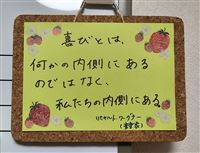 喜びとは、
何かの内側にある
のではなく、
私たちの内側にある
リヒャルト・ワーグナー
(音楽家)